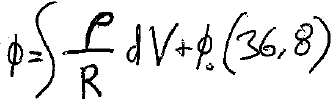 φ = ∫ ρ/R dV + φ₀ (36,8)